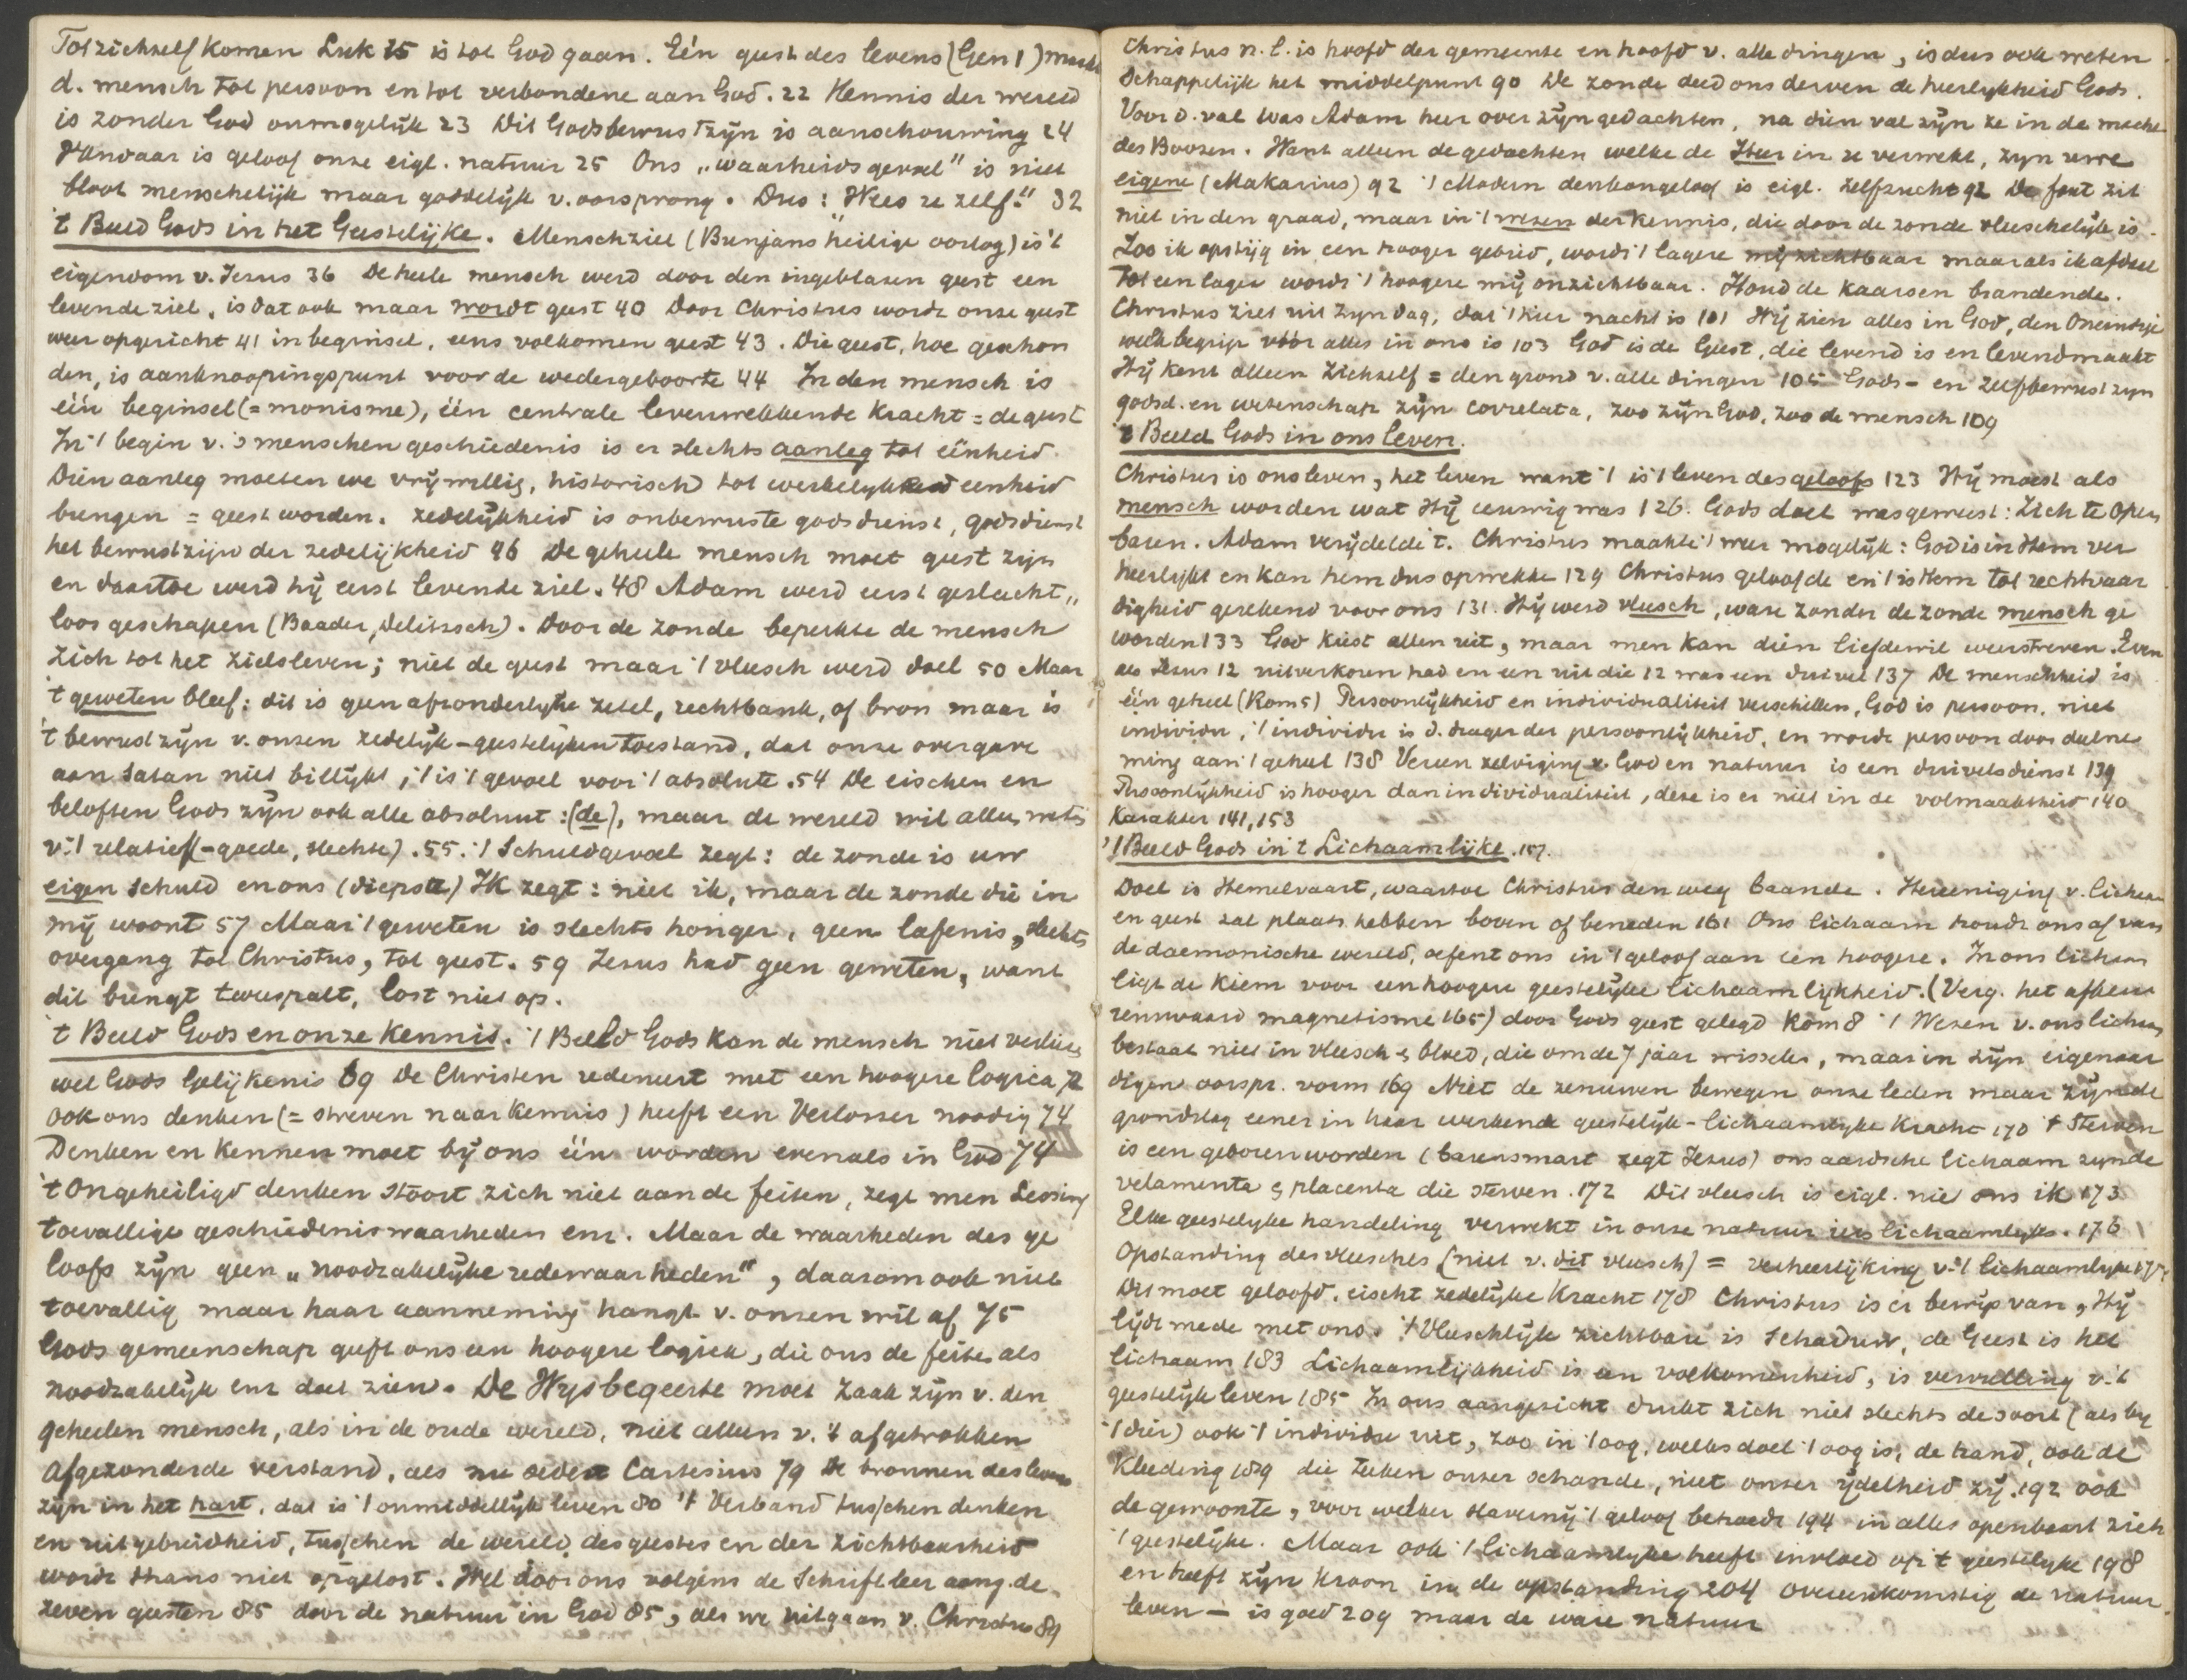 Tot zichzelf komen Luk 15 is tot God gaan. Eén geest des levens (Gen 1) maakt
d. mensch tot persoon en tot verbondene aan God. 22 Kennis der wereld
is zonder God onmogelijk 23 Dit Godsbewustzijn is aanschouwing 24
Vandaar is geloof onze eigl. natuur 25 Ons „waarheidsgevoel" is niet
bloot menschelijk maar goddelijk v. oorsprong. Dus: „Wees ze zelf." 32
't Beeld Gods in het Geestelijke. Menschziel (Bunjans heilige oorlog) is 't
eigendom v. Jezus 36 De heele mensch werd door den ingeblazen geest een
levende ziel, is dat ook maar wordt geest 40 Door Christus wordt onze geest
weer opgericht 41 in beginsel, eens volkomen geest 43. Die geest, hoe geschon
den, is aanknoopingspunt voor de wedergeboorte 44 In den mensch is
één beginsel (= monisme), één centrale levenwekkende kracht = de geest
In 't begin v. 's menschen geschiedenis is er slechts aanleg tot eenheid.
Dien aanleg moeten we vrijwillig, historisch tot werkelijkheid eenheid
brengen = geest worden. Zedelijkheid is onbewuste godsdienst, godsdienst
het bewustzijn der zedelijkheid 46 De geheele mensch moet geest zijn
en daartoe werd hij eerst levende ziel. 48 Adam werd eerst geslacht„
loos geschapen (Baader, Delitzsch). Door de zonde beperkte de mensch
zich tot het zielsleven; niet de geest maar 't vleesch werd doel 50 Maar
't geweten bleef: dit is geen afzonderlijke zetel, rechtbank, of bron maar is
't bewustzijn v. onzen zedelijk-geestelijken toestand, dat onze overgave
aan Satan niet billijkt, 't is 't gevoel voor 't absolute. 54 De eischen en
beloften Gods zijn ook alle absoluut: (de), maar de wereld wil alles weten
v. 't relatief (-goede, slechte). 55. 't Schuldgevoel zegt: de zonde is uw
eigen schuld en ons (diepste) Ik zegt: niet ik, maar de zonde die in
mij woont 57 Maar 't geweten is slechts honger, geen lafenis, slechts
overgang tot Christus, tot geest. 59 Jezus had geen geweten, want
dit brengt tweespalt, lost niet op.
't Beeld Gods en onze Kennis. 't Beeld Gods kan de mensch niet verliezen
wel Gods Gelijkenis 69 De Christen redeneert met een hoogere logica 72
ook ons denken (= streven naar kennis) heeft een Verlosser noodig 74
Denken en kennen moet bij ons één worden evenals in God 74
't Ongeheiligd denken stoort zich niet aan de feiten, zegt men Lessing
toevallige geschiedeniswaarheden enz. Maar de waarheden des ge
loofs zijn geen „noodzakelijke redewaarheden", daarom ook niet
toevallig maar haar aanneming hangt v. onzen wil af 75
Gods gemeenschap geeft ons een hoogere logica, die ons de feiten als
noodzakelijk enz doet zien. De Wijsbegeerte moet zaak zijn v. den
geheelen mensch, als in de oude wereld, niet alleen v. 't afgetrokken
afgezonderde verstand, als nu sedert Cartesius 79 De bronnen des levens
zijn in het hart, dat is 't onmiddellijk leven 80 't Verband tusschen denken
en uitgebreidheid, tusschen de wereld des geestes en der zichtbaarheid
wordt thans niet opgelost. Wel door ons volgens de Schriftleer aang. de
zeven geesten 85 door de natuur in God 85, als we uitgaan v. Christus 89
Christus n.l. is hoofd der gemeente en hoofd v. alle dingen, is dus ook weten
schappelijk het middelpunt 90 De zonde deed ons derven de heerlijkheid Gods.
Voor d. val was Adam heer over zijn gedachten, na dien val zijn ze in de macht
des Boozen. Want alleen de gedachten welke de Heer in ze verwekt, zijn uwe
eigene (Makarius) 92 't Modern denkongeloof is eigl. zelfzucht 92 De fout zit
niet in den graad, maar in 't wezen der kennis, die door de zonde vleeschelijk is.
Zoo ik opstijg in een hooger gebied, wordt 't lagere mij zichtbaar maar als ik afdaal
tot een lager wordt 't hoogere mij onzichtbaar. Houd de kaarsen brandende.
Christus ziet uit zijn dag, dat 't hier nacht is 101 Wij zien alles in God, den Oneindige
welk begrip vóór alles in ons is 103 God is de Geest, die levend is en levendmaakt
Hij kent alleen Zichzelf = den grond v. alle dingen 105 Gods- en zelfbewustzijn
godsd. en wetenschap zijn correlata, zoo zijn God, zoo de mensch 109
't Beeld Gods in ons leven.
Christus is ons leven, het leven want 't is 't leven des geloofs 123 Hij moest als
mensch worden wat Hij eeuwig was 126. Gods doel was geweest: Zich te open
baren. Adam verijdelde 't. Christus maakte 't weer mogelijk: God is in Hem ver
heerlijkt en kan hem dus opwekken 129 Christus geloofde en 't is Hem tot rechtvaar
digheid gerekend voor ons 131. Hij werd vleesch, ware zonder de zonde mensch ge
worden 133 God kiest allen uit, maar men kan dien liefdewil weerstreven. Even
als Jezus 12 uitverkoren had en een uit die 12 was een duivel 137 De menschheid is
één geheel (Rom 5) Persoonlijkheid en individualiteit verschillen, God is persoon, niet
individu, 't individu is d. drager der persoonlijkheid, en wordt persoon door deelne
ming aan 't geheel 138 Vereenzelviging v. God en natuur is een duivelsdienst 139
Persoonlijkheid is hooger dan individualiteit, deze is er niet in de volmaaktheid 140
Karakter 141, 153
't Beeld Gods in 't Lichaamlijke. 157.
Doel is Hemelvaart, waartoe Christus den weg baande. Hereeniging v. lichaam
en geest zal plaats hebben boven of beneden 161 Ons lichaam houdt ons af van
de daemonische wereld, oefent ons in 't geloof aan een hoogere. In ons lichaam
ligt de kiem voor een hoogere geestelijke lichaamlijkheid. (Verg. het afkeu
renswaard magnetisme 165) door Gods geest gelegd Rom 8 't Wezen v. ons lichaam
bestaat niet in vleesch & bloed, die om de 7 jaar wisselen, maar in zijn eigenaar
digen oorspr. vorm 169 Niet de zenuwen bewegen onze leden maar zijn de
grondslag eener in haar werkende geestelijk-lichaamlijke kracht 170 't Sterven
is een geboren worden (barensmart zegt Jezus) ons aardsche lichaam zijnde
velamenta & placenta die sterven. 172 Dit vleesch is eigl. niet ons ik 173
Elke geestelijke handeling verwekt in onze natuur iets lichaamlijks. 176
Opstanding des vleesches (niet v. dit vleesch) = verheerlijking v. 't lichaamlijke 177
Dit moet geloofd, eischt zedelijke kracht 178 Christus is er bewijs van, Hij
lijdt mede met ons. 't Vleeschlijk zichtbare is schaduw, de Geest is het
lichaam 183 Lichaamlijkheid is een volkomenheid, is vervulling v. 't
geestelijk leven 185 In ons aangezicht drukt zich niet slechts de soort (als bij
't dier) ook 't individu uit, zoo in 't oog, welks doel 't oog is, de hand, ook de
kleeding 189 die teeken onzer schande, niet onzer ijdelheid zij. 192 ook
de gewoonte, voor welker slavernij 't geloof behoedt 194 in alles openbaart zich
't geestelijke. Maar ook 't lichaamlijke heeft invloed op 't geestelijke 198
en heeft zijn kroon in de opstanding 204 overeenkomstig de natuur
leven — is goed 209 maar de ware natuur